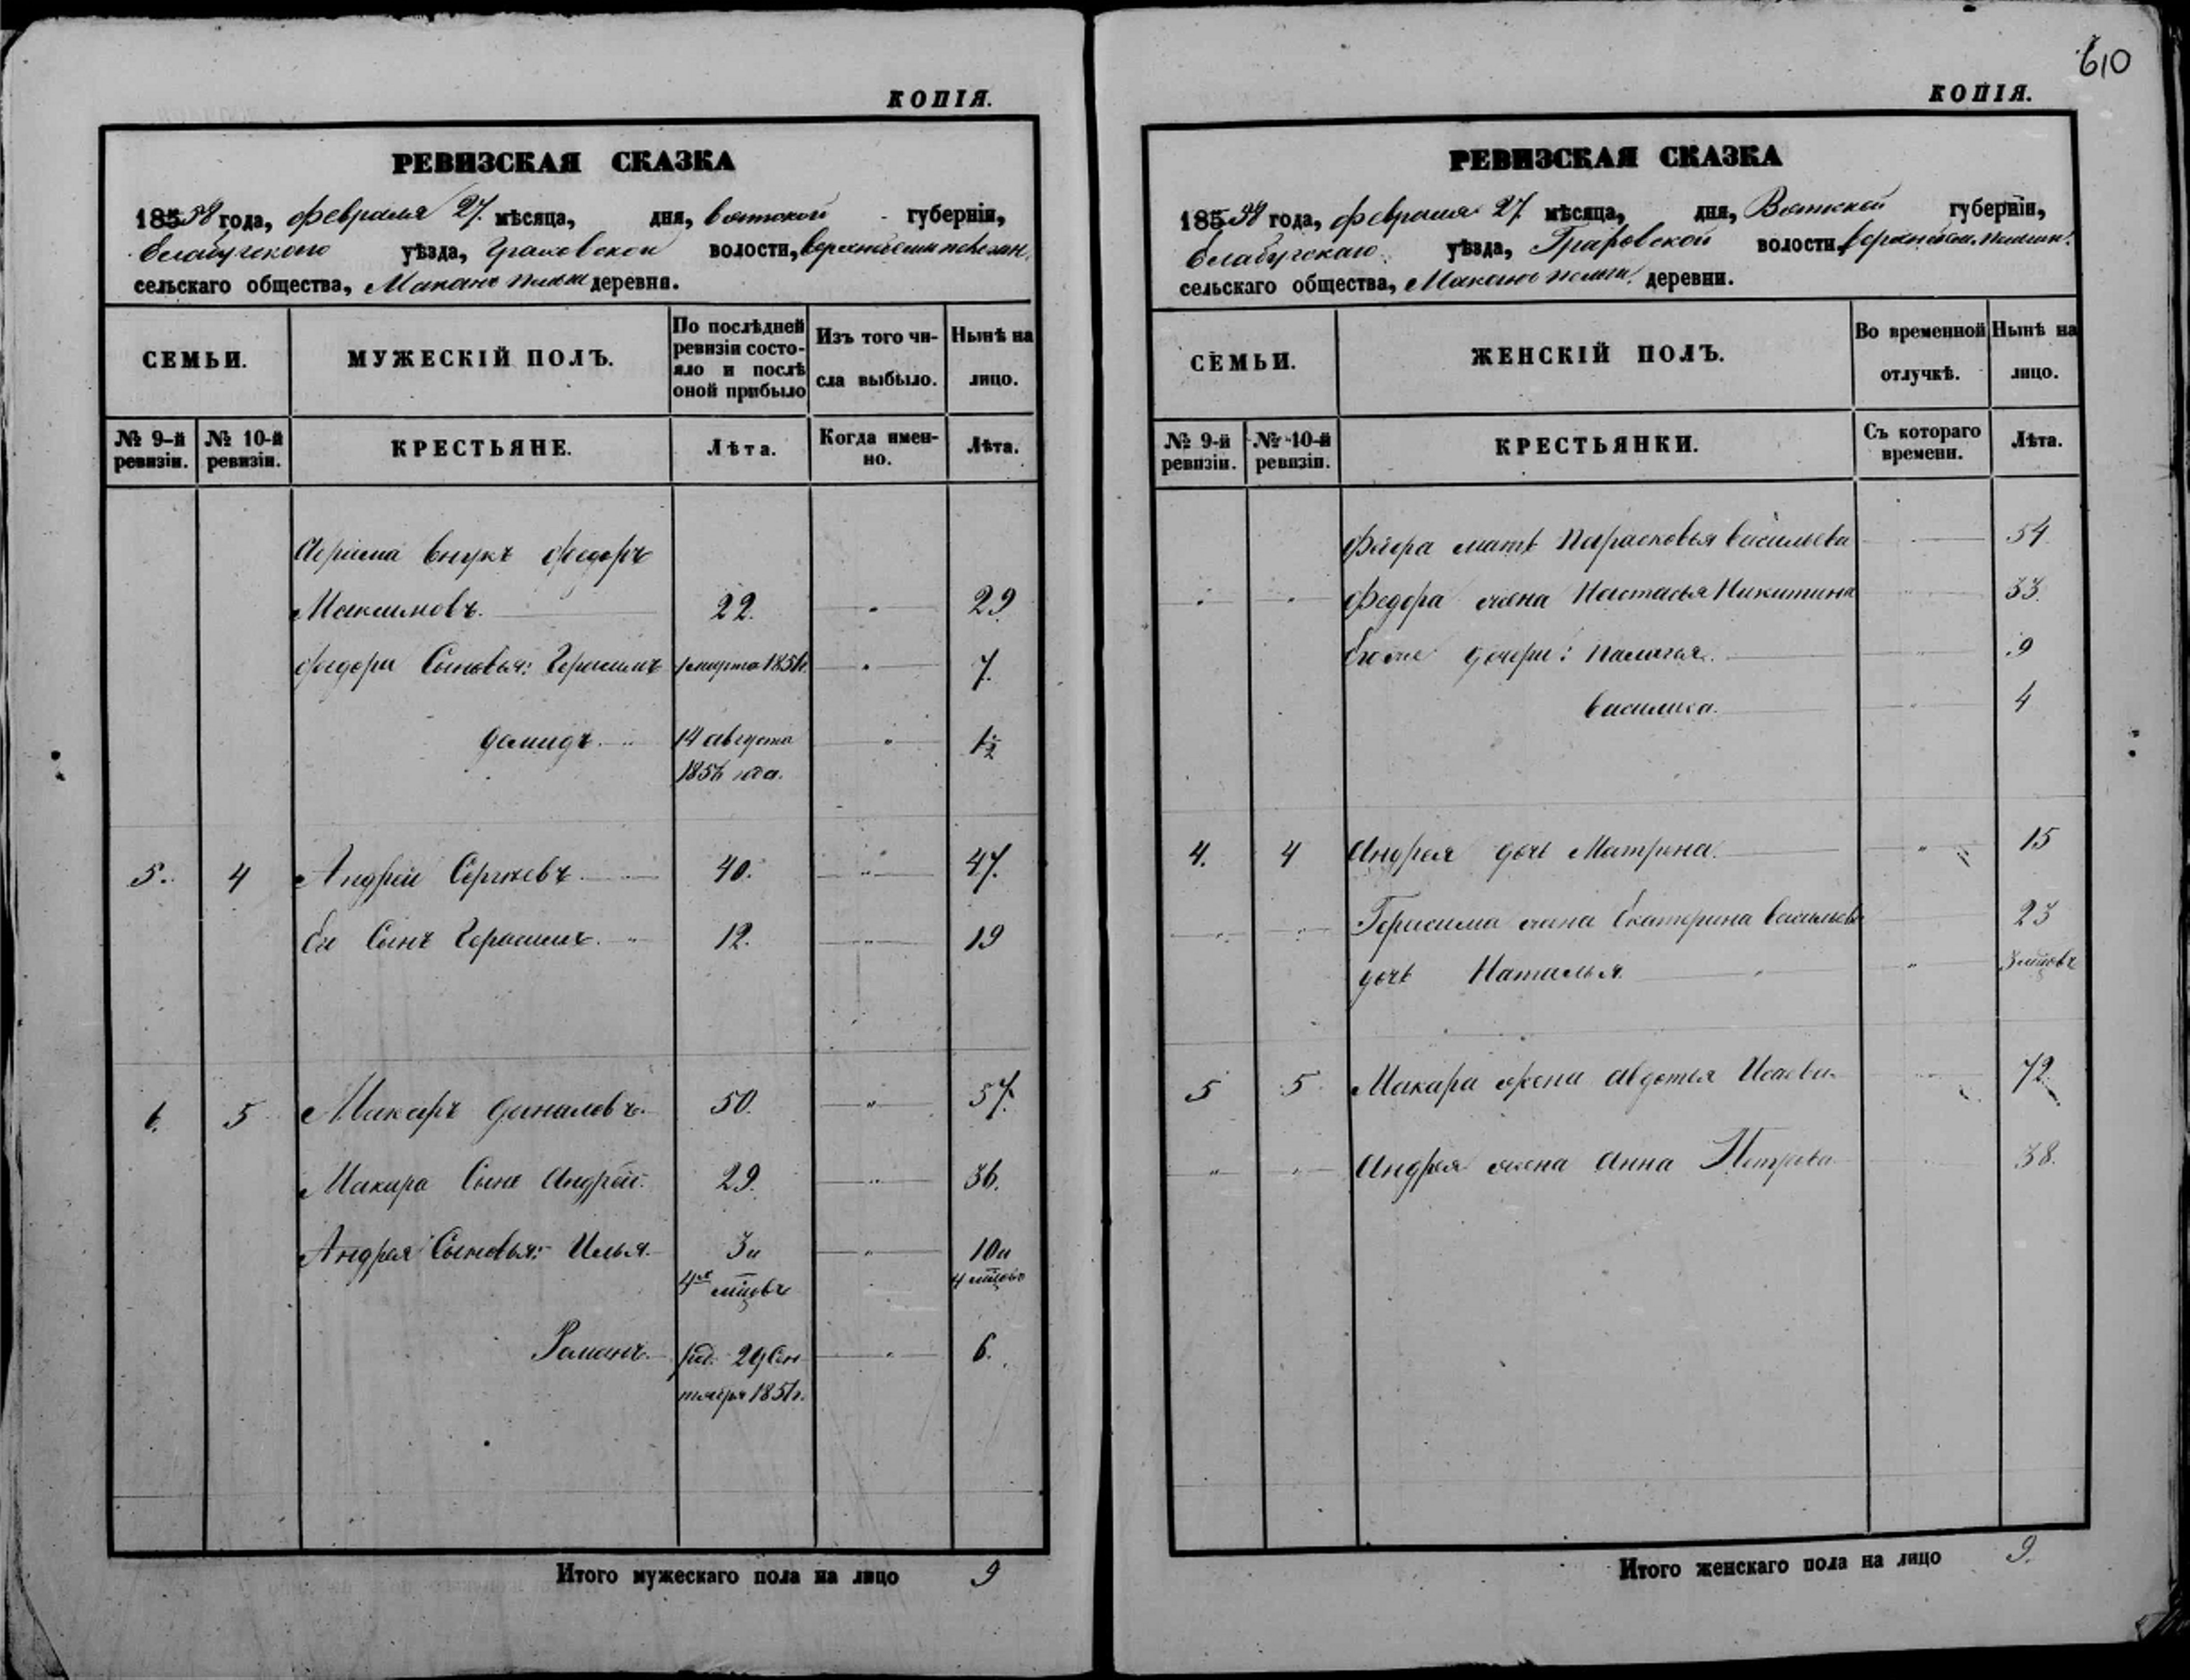 610
КОПІЯ.
РЕВИЗСКАЯ СКАЗКА
18558 года, февраля 27. мѣсяца, дня, вятской губерніи,
Елабугского уѣзда, Граховской волости,
сельскаго общества, Макано пельги деревни.
СЕМЬИ. МУЖЕСКІЙ ПОЛЪ. По послѣдней ревизіи состояло и послѣ оной прибыло Изъ того числа выбыло. Нынѣ на лицо.
№ 9-й ревизіи. № 10-й ревизіи. КРЕСТЬЯНЕ. Лѣта. Когда именно. Лѣта.
внукъ федоръ
Максимовъ. 22. " 29
федора Сыновья: Герасимъ марта 1851г. " 7.
демидъ. 14 августа 1856 года. " 1½
5. 4 Андрей Сергѣевъ 40. " 47.
Ег Сынъ Герасимъ. 12. " 19
6. 5 Макаръ даниловъ. 50. " 57.
Макара Сынъ Андрей. 29. " 36.
Андрея Сыновья: Илья. 3и 4ᵉ мцовъ " 10и 4 мцовъ
Романъ. род. 29 Сентября 1851г. " 6.
Итого мужескаго пола на лицо 9
КОПІЯ.
РЕВИЗСКАЯ СКАЗКА
18558 года, февраля 27 мѣсяца, дня, Вятской губерніи,
Елабугскаго уѣзда, Граховской волости,
сельскаго общества, Макано пельги деревни.
СЕМЬИ. ЖЕНСКІЙ ПОЛЪ. Во временной отлучкѣ. Нынѣ на лицо.
№ 9-й ревизіи. № 10-й ревизіи. КРЕСТЬЯНКИ. Съ котораго времени. Лѣта.
мать Парасковья васильева 54
" " Федора жена Настасья Никитина 33.
дочери: Палагея. 9
василиса. 4
4. 4 Андрея дочь Матрена. " 15
" " Герасима жена Екатерина васильева 23
дочь Наталья. " 3 мцовъ
5 5 Макара жена авдотья Исаева 72
" " Андрея жена Анна Петрова 38.
Итого женскаго пола на лицо 9.